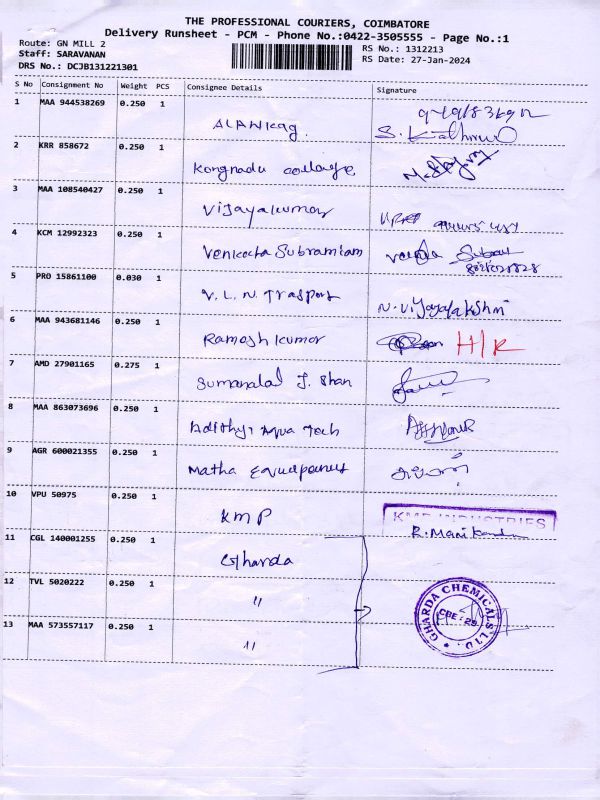 THE PROFESSIONAL COURIERS, COIMBATORE
Delivery Runsheet - PCM - Phone No.:0422-3505555 - Page No.:1
Route: GN MILL 2
RS No.: 1312213
Staff: SARAVANAN
RS Date: 27-Jan-2024
DRS No.: DCJB131221301
S No Consignment No Weight PCS Consignee Details Signature
1 MAA 944538269 0.250 1
2 KRR 858672 0.250 1 Kongnadu
3 MAA 108540427 0.250 1 Vijayakumar
4 KCM 12992323 0.250 1 Venkata Subramiam
5 PRO 15861100 0.030 1 V. L. N. N. Vijayalakshmi
6 MAA 943681146 0.250 1 Ramesh kumar H/R
7 AMD 27901165 0.275 1 Sumanalal J. Shah
8 MAA 863073696 0.250 1 Aqua Tech
9 AGR 600021355 0.250 1 Matha
10 VPU 50975 0.250 1 KMP
KMP INDUSTRIES
R. Manikandan
11 CGL 140001255 0.250 1 Gharda
12 TVL 5020222 0.250 1 "
GHARDA CHEMICALS LTD.
CBE - 29
13 MAA 573557117 0.250 1 "